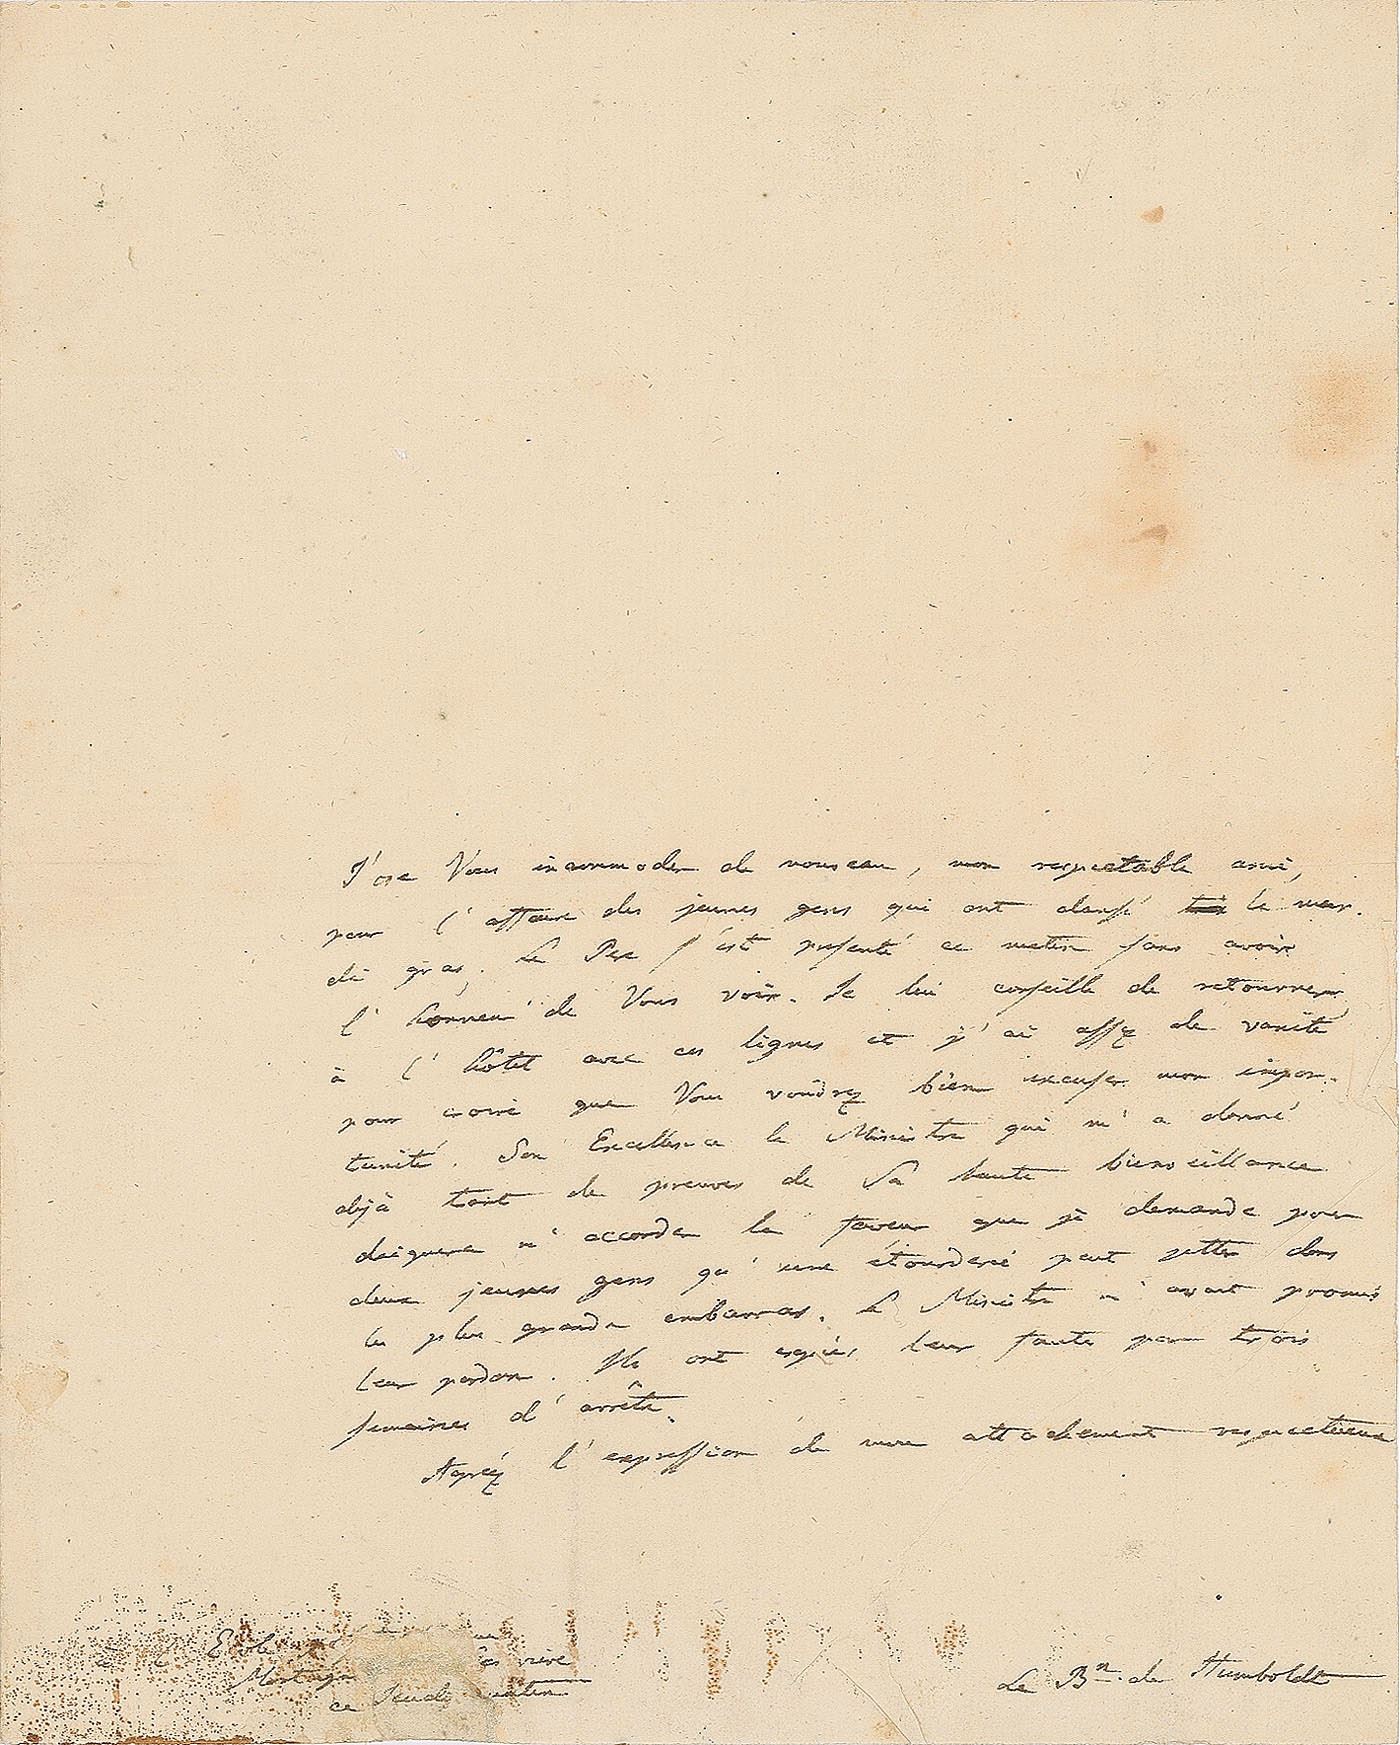 J'ose Vous incommoder de nouveau, mon respectable ami,
pour l'affaire des jeunes gens qui ont dansé le mar-
di gras. Le Père s'est présenté ce matin sans avoir
l'honneur de Vous voir. Je lui conseille de retourner
à l'hôtel avec ces lignes et j'ai assez de vanité
pour croire que Vous voudrez bien excuser mon impor-
tunité. Son Excellence le Ministre qui m'a donné
déjà tant de preuves de Sa haute bienveillance
daignera m'accorder la faveur que je demande pour
deux jeunes gens qu'une étourderie peut jetter dans
le plus grande embarras. Le Ministre m'avait promis
leur pardon. Ils ont expiés leur faute par trois
semaines d'arrêts.
Agréez l'expression de mon attachement respectueux
Le Bn de Humboldt
à l'Ecole
ce Jeudi matin